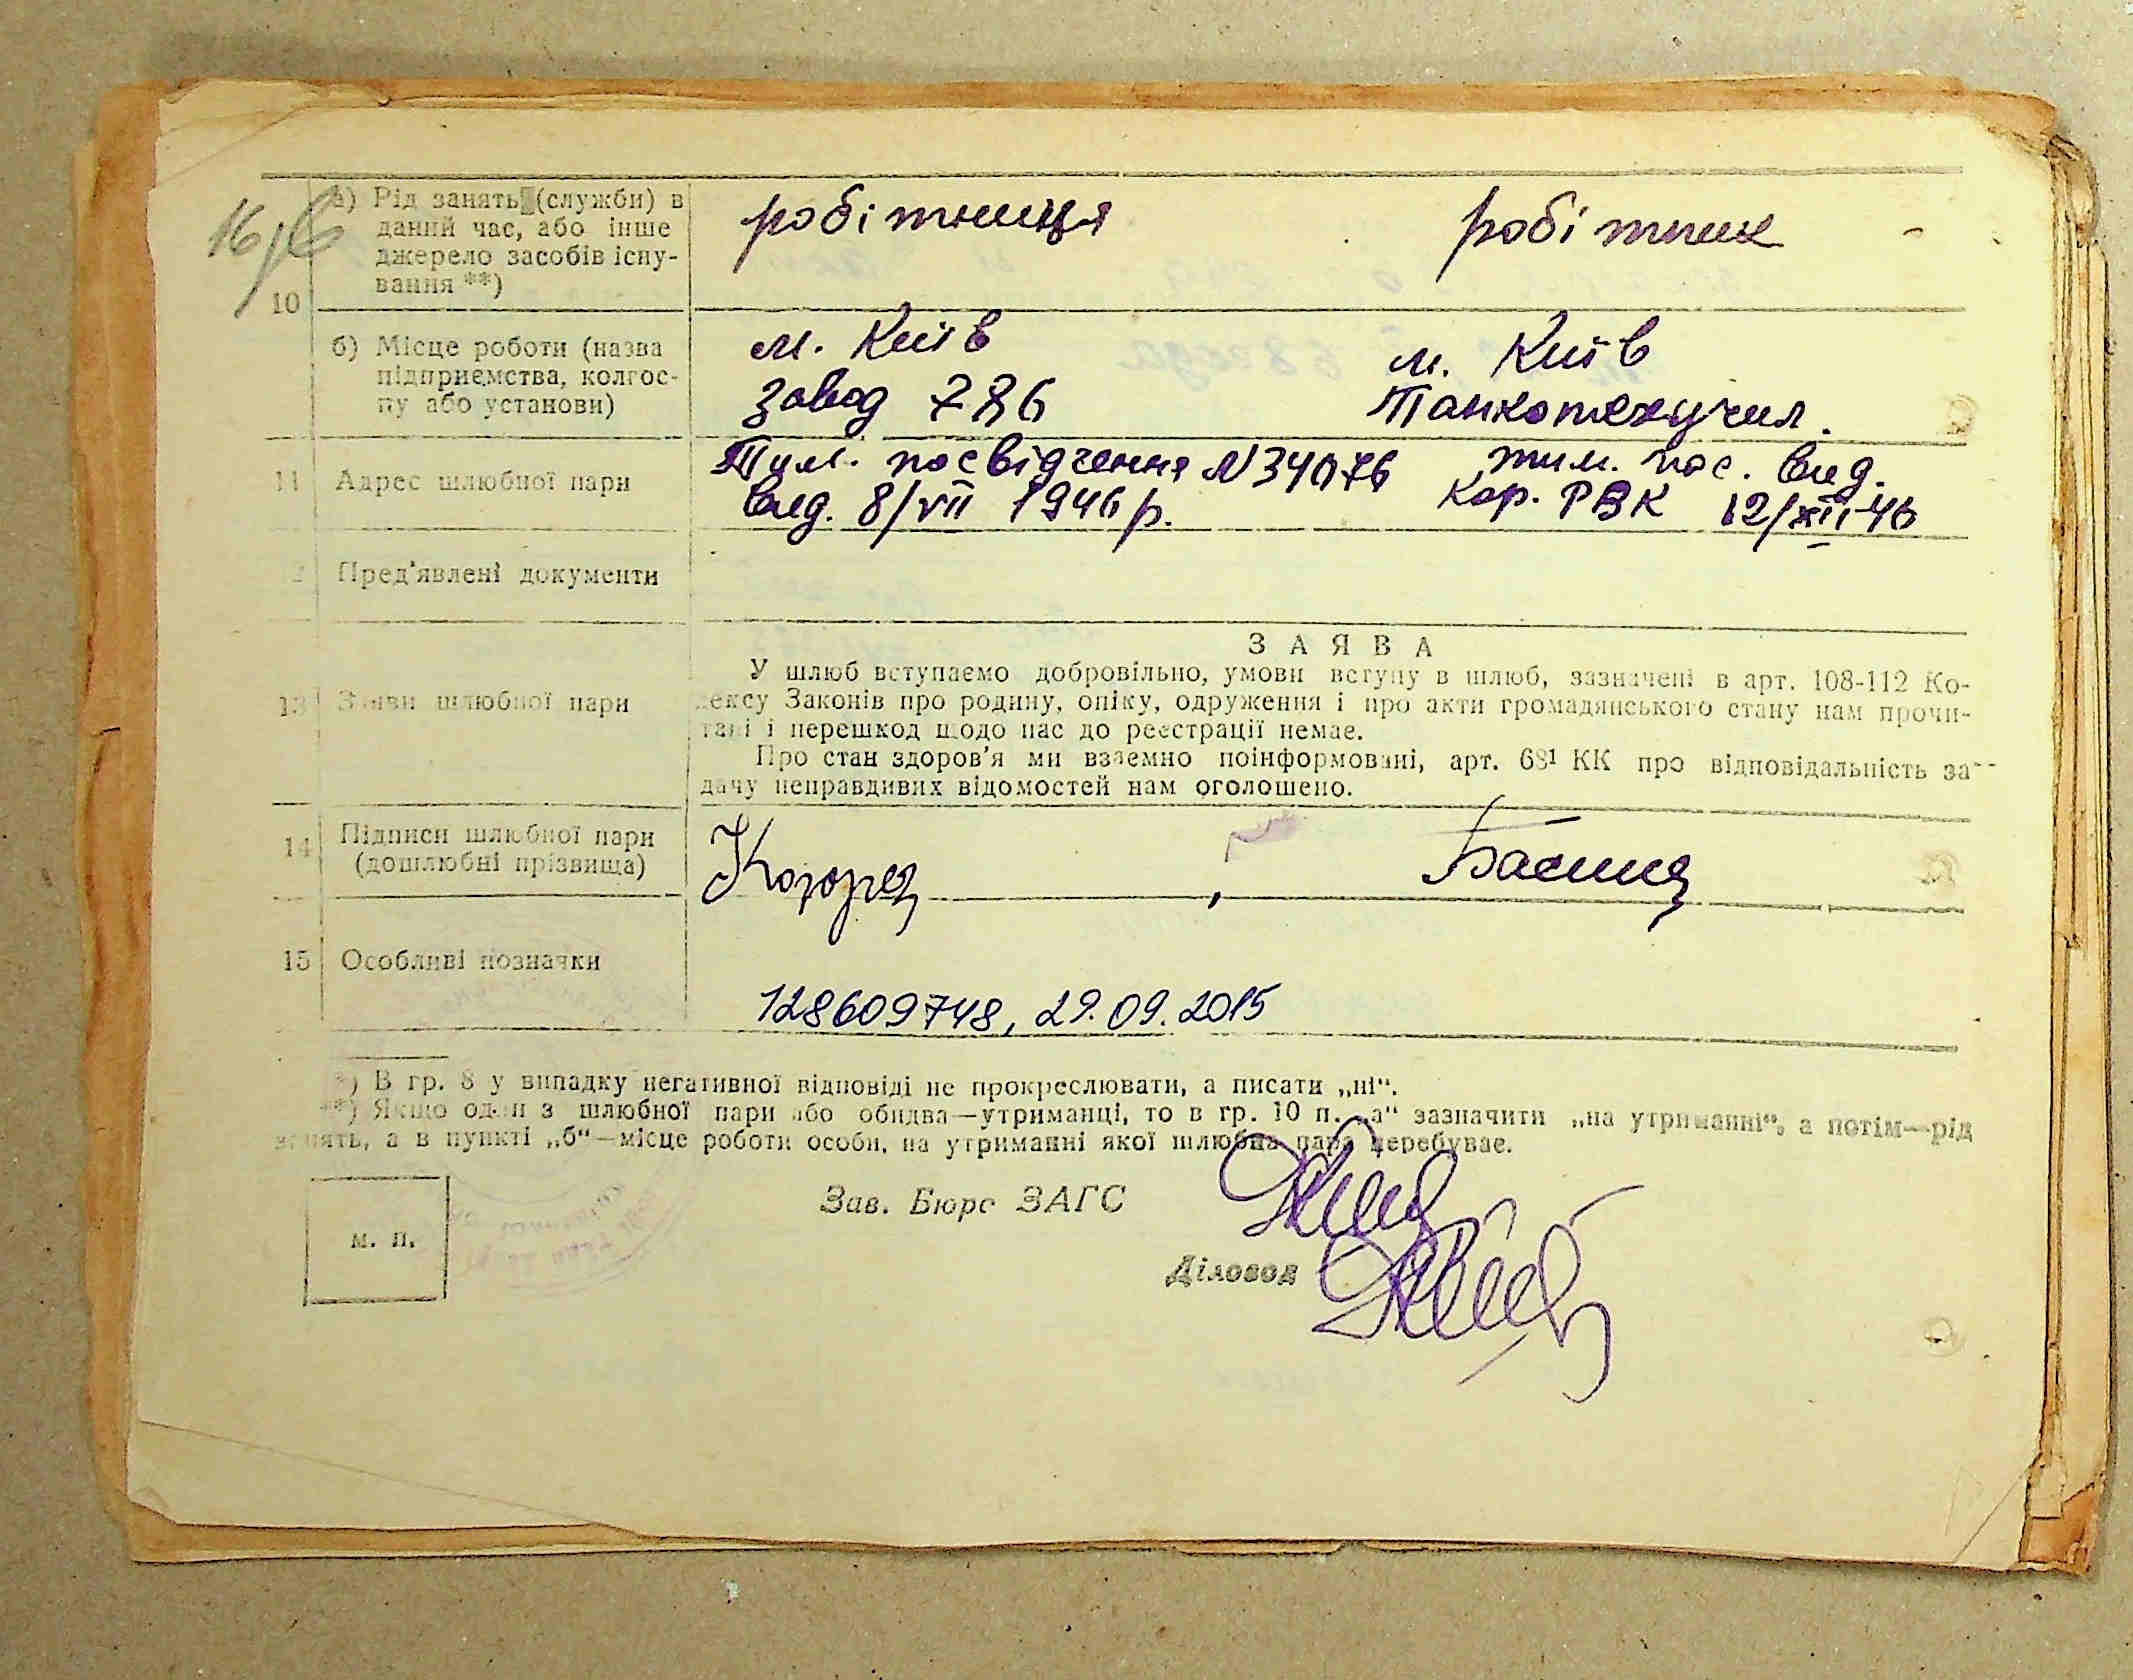 а) Рід занять (служби) в
даний час, або інше
джерело засобів існу-
вання **)
робітниця
робітник
10
б) Місце роботи (назва
підприємства, колгос-
пу або установи)
м. Київ
завод 786
м. Київ
Танкотехучил.
11 Адрес шлюбної пари
Тим. посвідчення N34076
вид. 8/VII 1946 р.
тим. пос. вид.
Кор. РВК 12/XII-46
Пред'явлені документи
13 Заяви шлюбної пари
ЗАЯВА
У шлюб вступаємо добровільно, умови вступу в шлюб, зазначені в арт. 108-112 Ко-
дексу Законів про родину, опіку, одруження і про акти громадянського стану нам прочи-
тані і перешкод щодо нас до реєстрації немає.
Про стан здоров'я ми взаємно поінформовані, арт. 68¹ КК про відповідальність за
дачу неправдивих відомостей нам оголошено.
14 Підписи шлюбної пари
(дошлюбні прізвища)
15 Особливі позначки
128609748, 29.09.2015
*) В гр. 8 у випадку негативної відповіді не прокреслювати, а писати „ні“.
**) Якщо один з шлюбної пари або обидва—утриманці, то в гр. 10 п. „а“ зазначити „на утриманні“, а потім—рід
занять, а в пункті „б“—місце роботи особи, на утриманні якої шлюбна пара перебуває.
Зав. Бюро ЗАГС
Діловод
м. п.